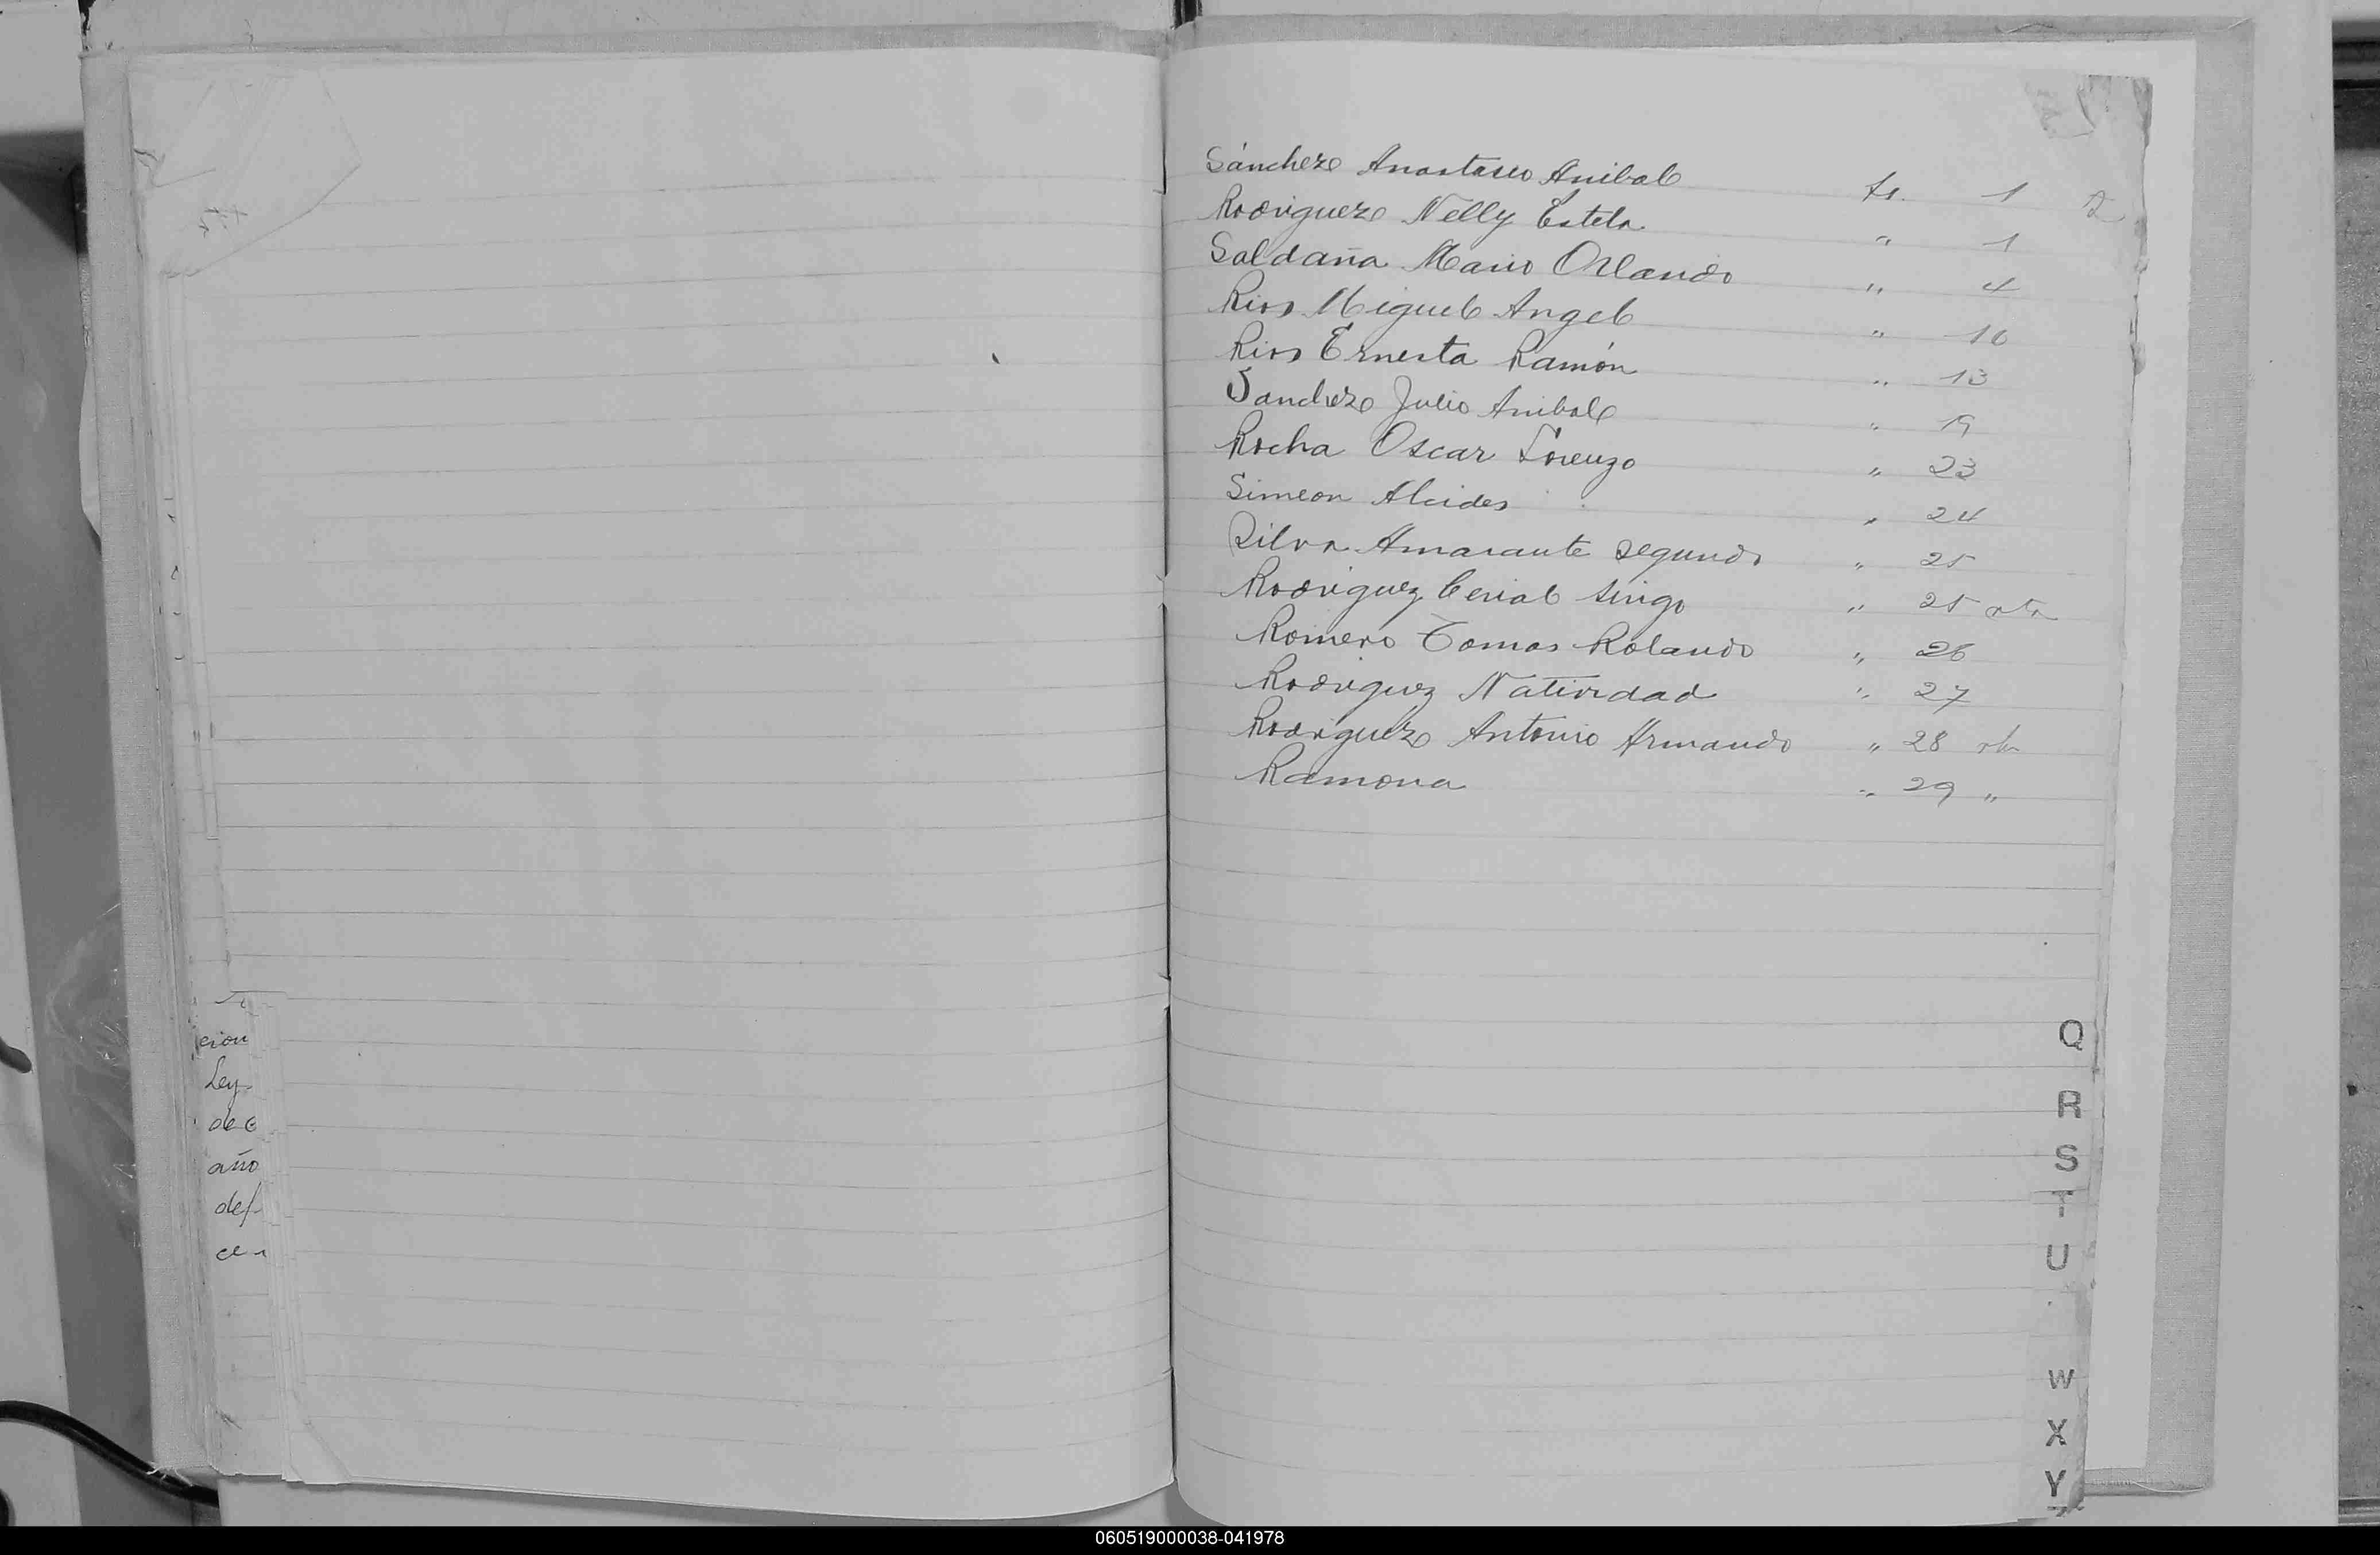 Sánchez Anastasio Anibal fs. 1
Rodriguez Nelly Estela " 1
Saldaña Mario Orlando " 4
Rios Miguel Angel " 10
Rios Ernesta Ramón " 13
Sanchez Julio Anibal " 19
Rocha Oscar Lorenzo " 23
Simeon Alcides " 24
Silva Amarante Segundo " 25
Rodriguez " 25 vta
Romero Tomas Rolando " 26
Rodriguez Natividad " 27
Rodriguez Antonio Armando " 28 vta
Ramona " 29 "
Q
R
S
T
U
W
X
Y
Ley
de
año
def
060519000038-041978